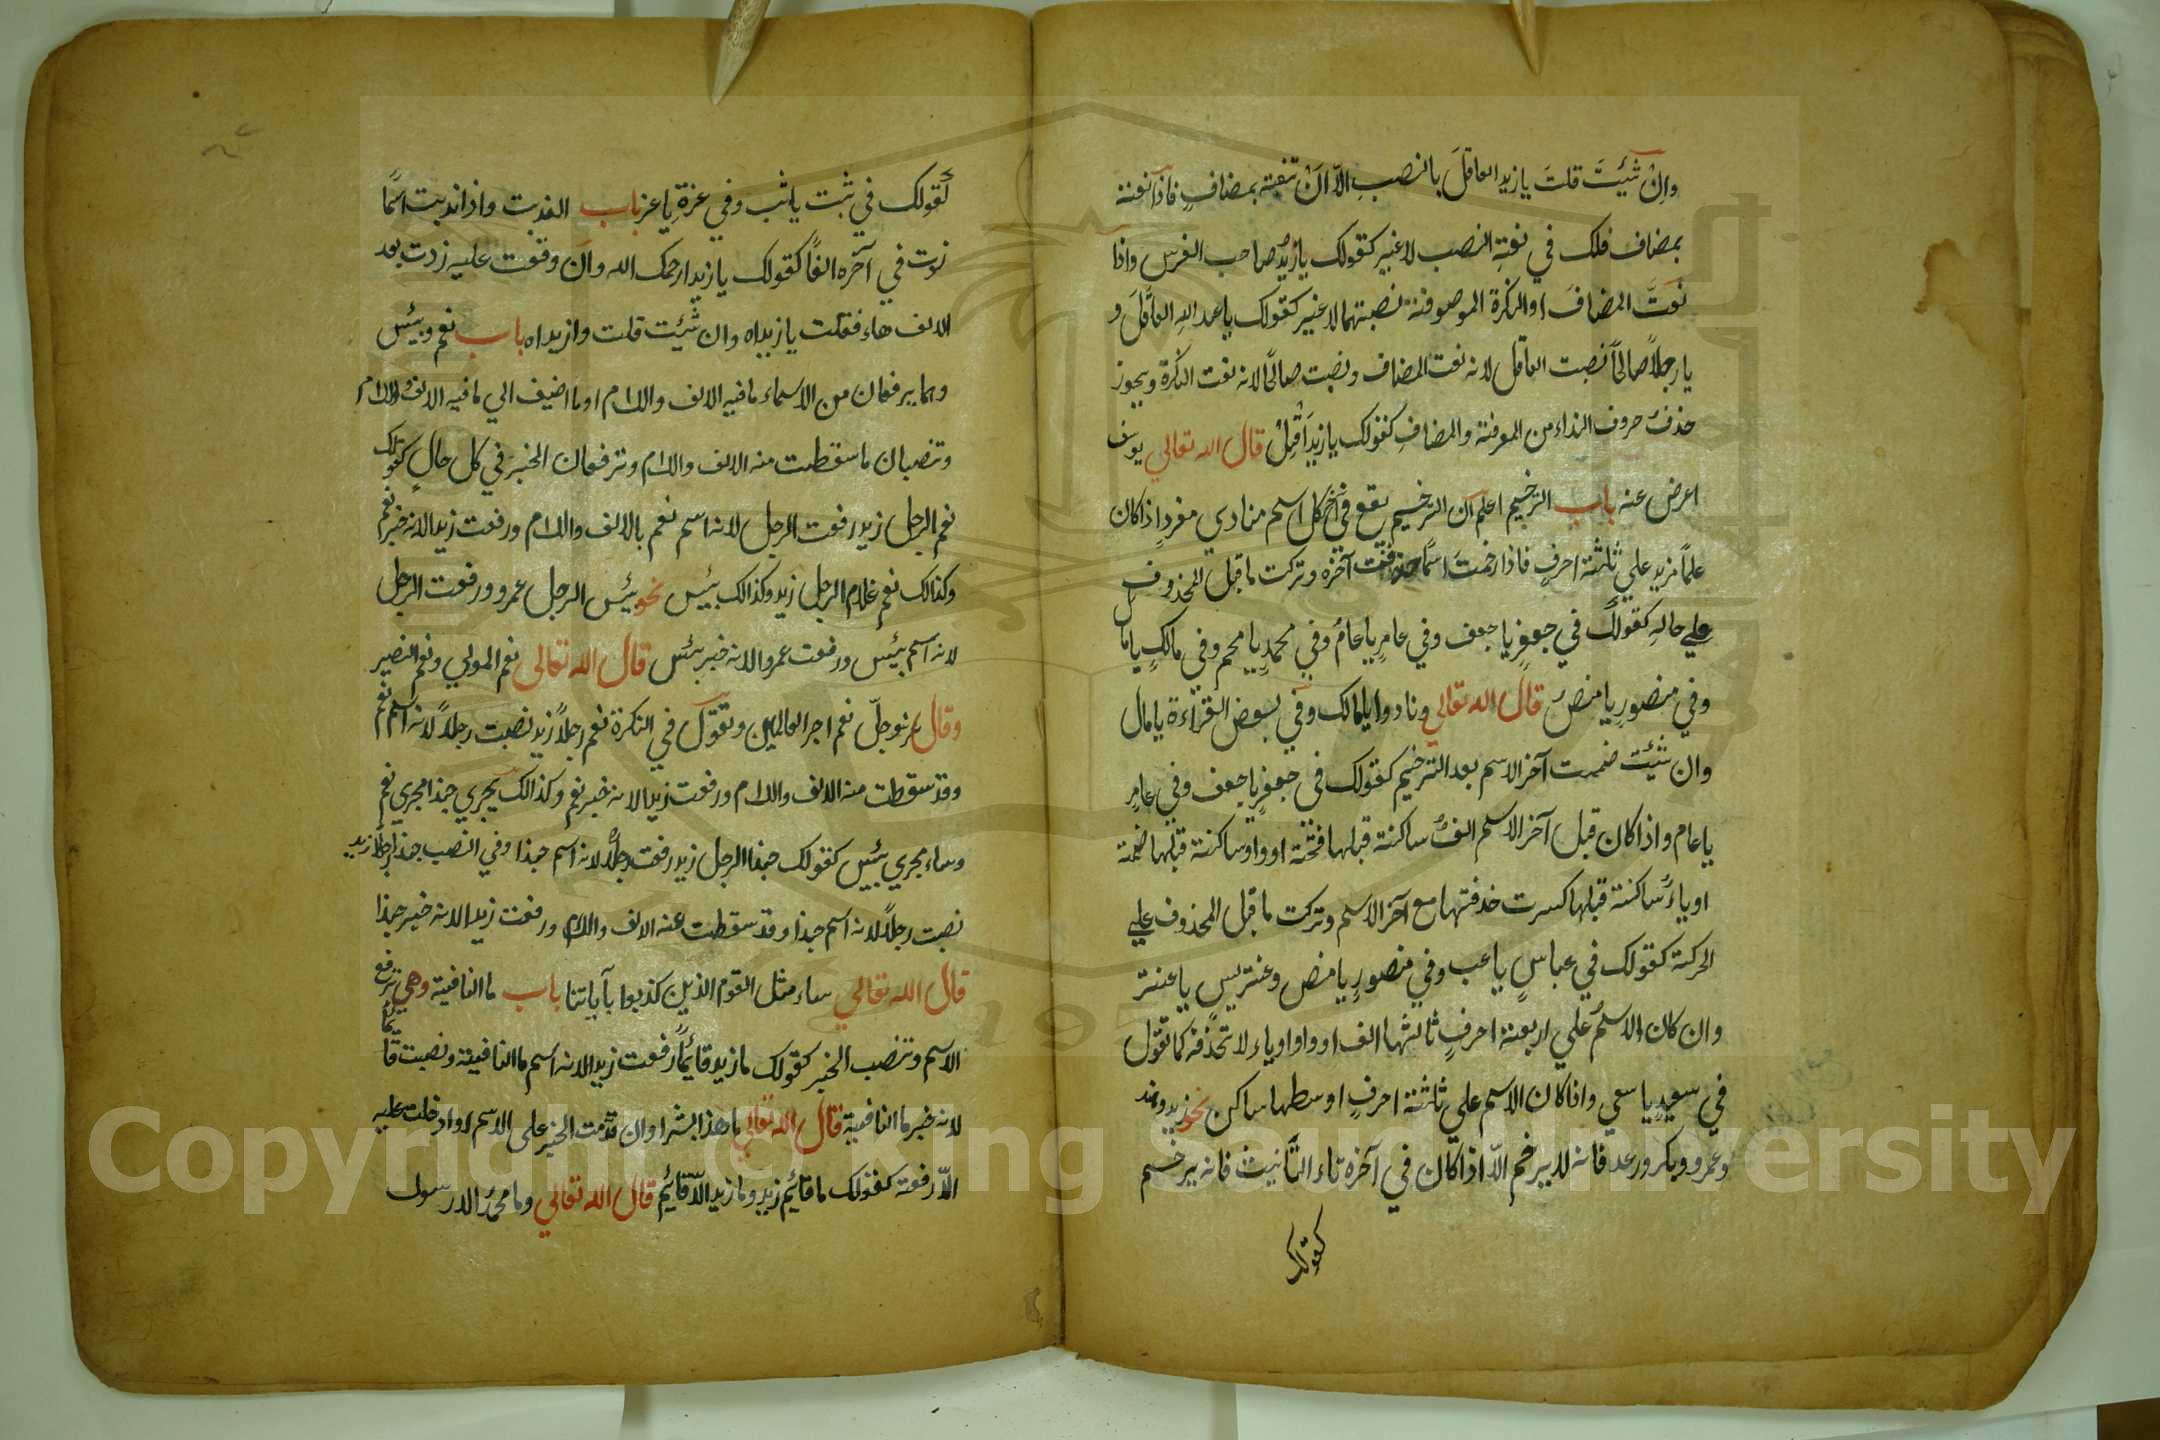 وان شئت قلت يا زيد العاقلَ بالنصبِ الاّ انْ تنعته بمضافٍ فاذا نعته
بمضاف فلك في نعتهِ النصب لا غير كقولك يا زيدُ صاحب الفرس واذا
نعتَّ المضافَ او النكرة الموصوفة نصبتهما لا غير كقولك يا عبد اللهِ العاقلَ و
يا رجلاً صالحاً نصبت العاقل لانه نعت المضاف ونصبت صالحاً لانه نعت النكرة ويجوز
حذفُ حروف النداء من المعرفة والمضافِ كقولك يا زيدُ اَقْبِلْ قال الله تعالي يوسف
اعرض عنه باب الترخيم اعلم ان الترخيم يقع في آخر كل اسم منادي مفردٍ اذا كان
علماً مزيد علي ثلثة احرفٍ فاذا رخمتَ اسماً حذفت آخره وتركت ما قبل المحذوف
علي حالهِ كقولك في جعفرٍ يا جعف وفي عامرٍ يا عامُ وفي محمدٍ يا محم وفي مالكٍ يا مال
وفي منصورٍ يا منص قال الله تعالي ونادوا يا مالك وفي بعض القراءة يا مال
وان شئت ضممت آخر الاسم بعد الترخيم كقولك في جعفرٍ يا جعف وفي عامرٍ
يا عام واذا كان قبل آخر الاسم الفُ ساكنة قبلها فتحة او واو ساكنة قبلها ضمة
او ياءُ ساكنة قبلها كسرت حذفتها مع آخر الاسم وتركت ما قبل المحذوف علي
الحركة كقولك في عباسٍ يا عب وفي منصورٍ يا منص وعنتريس يا عنتر
وان كان الاسمُ علي اربعة احرفٍ ثالثها الف او واو او ياء لا تحذفه كما تقول
في سعيدٍ يا سعي واذا كان الاسم علي ثلثة احرفٍ اوسطها ساكن نحو زيد وهند
وعمرو وبكر ورعد فانه لا يرخم الاّ اذا كان في آخره تاء التانيث فانه يرخم
كقولك
كقولك في ثبت يا ثب وفي عزةِ يا عز باب الندبت واذا ندبت اسمًا
زدت في آخره الفاً كقولك يا زيدا رحمك الله وان وقفت عليه زدت بعد
الالف هاء فقلت يا زيداه وان شئت قلت وا زيداه باب نعم وبئس
وهما يرفعان من الاسماء ما فيه الالف واللام او ما اضيف الي ما فيه الالف واللام
وتنصبان ما سقطت منه الالف واللام وترفعان الخبر في كل حالٍ كقولك
نعم الرجل زيد رفعت الرجل لانه اسم نعم بالالف واللام ورفعت زيدا لانه خبر نعم
وكذالك نعم غلام الرجل زيد وكذالك بئس نحو بئس الرجل عمرو ورفعت الرجل
لانه اسم بئس ورفعت عمروا لانه خبر بئس قال الله تعالي نعم المولي ونعم النصير
وقال عزوجلّ نعم اجر العالمين وتقول في النكرة نعم رجلاً زيد نصبت رجلاً لانه اسم نعم
وقد سقطت منه الالف واللام ورفعت زيدا لانه خبر نعم وكذالك يجري حبذا مجري نعم
وساء مجري بئس كقولك حبذا الرجل زيد رفعت رجلاً لانه اسم حبذا وفي النصب حبذا رجلاً زيد
نصبت رجلاً لانه اسم حبذا وقد سقطت عنه الالف واللام ورفعت زيدا لانه خبر حبذا
قال الله تعالي ساء مثل القوم الذين كذبوا بآياتنا باب ما النافية وهي ترفع
الاسم وتنصب الخبر كقولك ما زيد قائماً رفعت زيدا لانه اسم ما النافية ونصبت قائما
لانه خبر ما النافية قال الله تعالي ما هذا بشرا وان قدّمت الخبر علي الاسم او ادخلت عليه
الاّ رفعته كقولك ما قائم زيد وما زيد الاّ قائم قال الله تعالي وما محمدُ الا رسول
Copyright © King Saud University